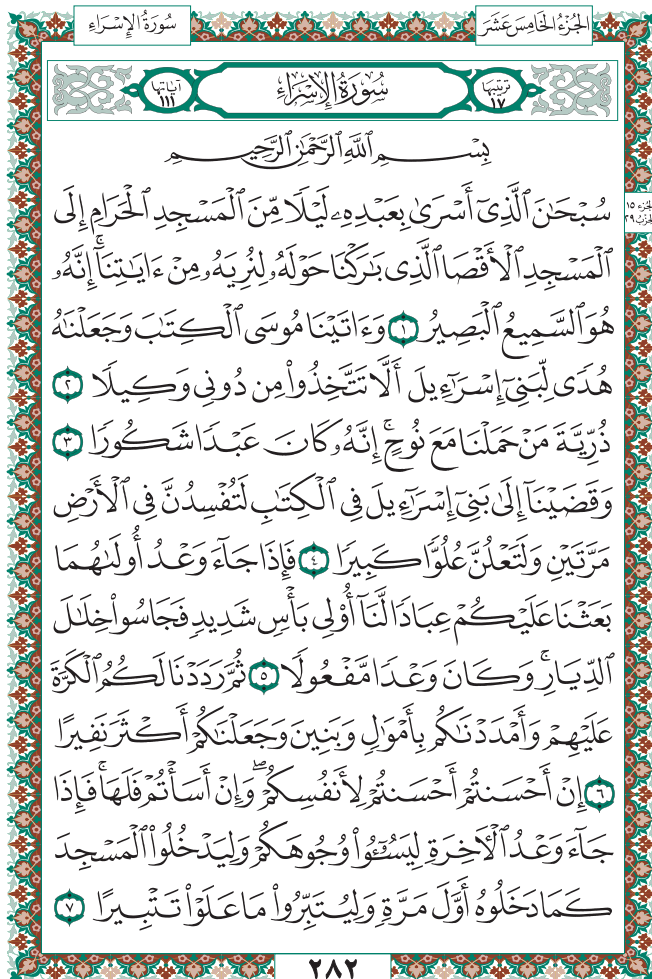 الجُزْءُ الخَامِسَ عَشَرَ
سُورَةُ الإِسْرَاءِ
ترتيبها ١٧
سُورَةُ الإِسْرَاءِ
آياتها ١١١
بِسْمِ ٱللَّهِ ٱلرَّحْمَٰنِ ٱلرَّحِيمِ
سُبْحَٰنَ ٱلَّذِىٓ أَسْرَىٰ بِعَبْدِهِۦ لَيْلًا مِّنَ ٱلْمَسْجِدِ ٱلْحَرَامِ إِلَى
الجزء ١٥
الحزب ٢٩
ٱلْمَسْجِدِ ٱلْأَقْصَا ٱلَّذِى بَٰرَكْنَا حَوْلَهُۥ لِنُرِيَهُۥ مِنْ ءَايَٰتِنَآۚ إِنَّهُۥ
هُوَ ٱلسَّمِيعُ ٱلْبَصِيرُ ١ وَءَاتَيْنَا مُوسَى ٱلْكِتَٰبَ وَجَعَلْنَٰهُ
هُدًى لِّبَنِىٓ إِسْرَٰٓءِيلَ أَلَّا تَتَّخِذُوا۟ مِن دُونِى وَكِيلًا ٢
ذُرِّيَّةَ مَنْ حَمَلْنَا مَعَ نُوحٍۚ إِنَّهُۥ كَانَ عَبْدًا شَكُورًا ٣
وَقَضَيْنَآ إِلَىٰ بَنِىٓ إِسْرَٰٓءِيلَ فِى ٱلْكِتَٰبِ لَتُفْسِدُنَّ فِى ٱلْأَرْضِ
مَرَّتَيْنِ وَلَتَعْلُنَّ عُلُوًّا كَبِيرًا ٤ فَإِذَا جَآءَ وَعْدُ أُولَىٰهُمَا
بَعَثْنَا عَلَيْكُمْ عِبَادًا لَّنَآ أُو۟لِى بَأْسٍ شَدِيدٍ فَجَاسُوا۟ خِلَٰلَ
ٱلدِّيَارِۚ وَكَانَ وَعْدًا مَّفْعُولًا ٥ ثُمَّ رَدَدْنَا لَكُمُ ٱلْكَرَّةَ
عَلَيْهِمْ وَأَمْدَدْنَٰكُم بِأَمْوَٰلٍ وَبَنِينَ وَجَعَلْنَٰكُمْ أَكْثَرَ نَفِيرًا
٦ إِنْ أَحْسَنتُمْ أَحْسَنتُمْ لِأَنفُسِكُمْۖ وَإِنْ أَسَأْتُمْ فَلَهَاۚ فَإِذَا
جَآءَ وَعْدُ ٱلْأٓخِرَةِ لِيَسُـۥٓـُٔوا۟ وُجُوهَكُمْ وَلِيَدْخُلُوا۟ ٱلْمَسْجِدَ
كَمَا دَخَلُوهُ أَوَّلَ مَرَّةٍ وَلِيُتَبِّرُوا۟ مَا عَلَوْا۟ تَتْبِيرًا ٧
٢٨٢